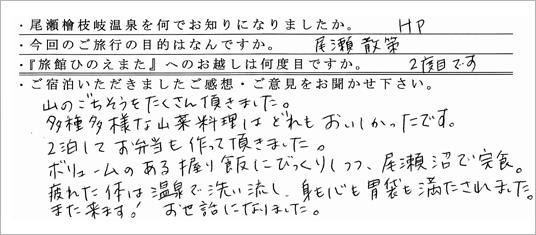 ・尾瀬檜枝岐温泉を何でお知りになりましたか。 HP
・今回のご旅行の目的はなんですか。 尾瀬散策
・『旅館ひのえまた』へのお越しは何度目ですか。 2度目です
・ご宿泊いただきましたご感想・ご意見をお聞かせ下さい。
山のごちそうをたくさん頂きました。
多種多様な山菜料理はどれもおいしかったです。
2泊してお弁当も作って頂きました。
ボリュームのある握り飯にびっくりしつつ、尾瀬沼で完食。
疲れた体は温泉で洗い流し、身も心も胃袋も満たされました。
また来ます! お世話になりました。